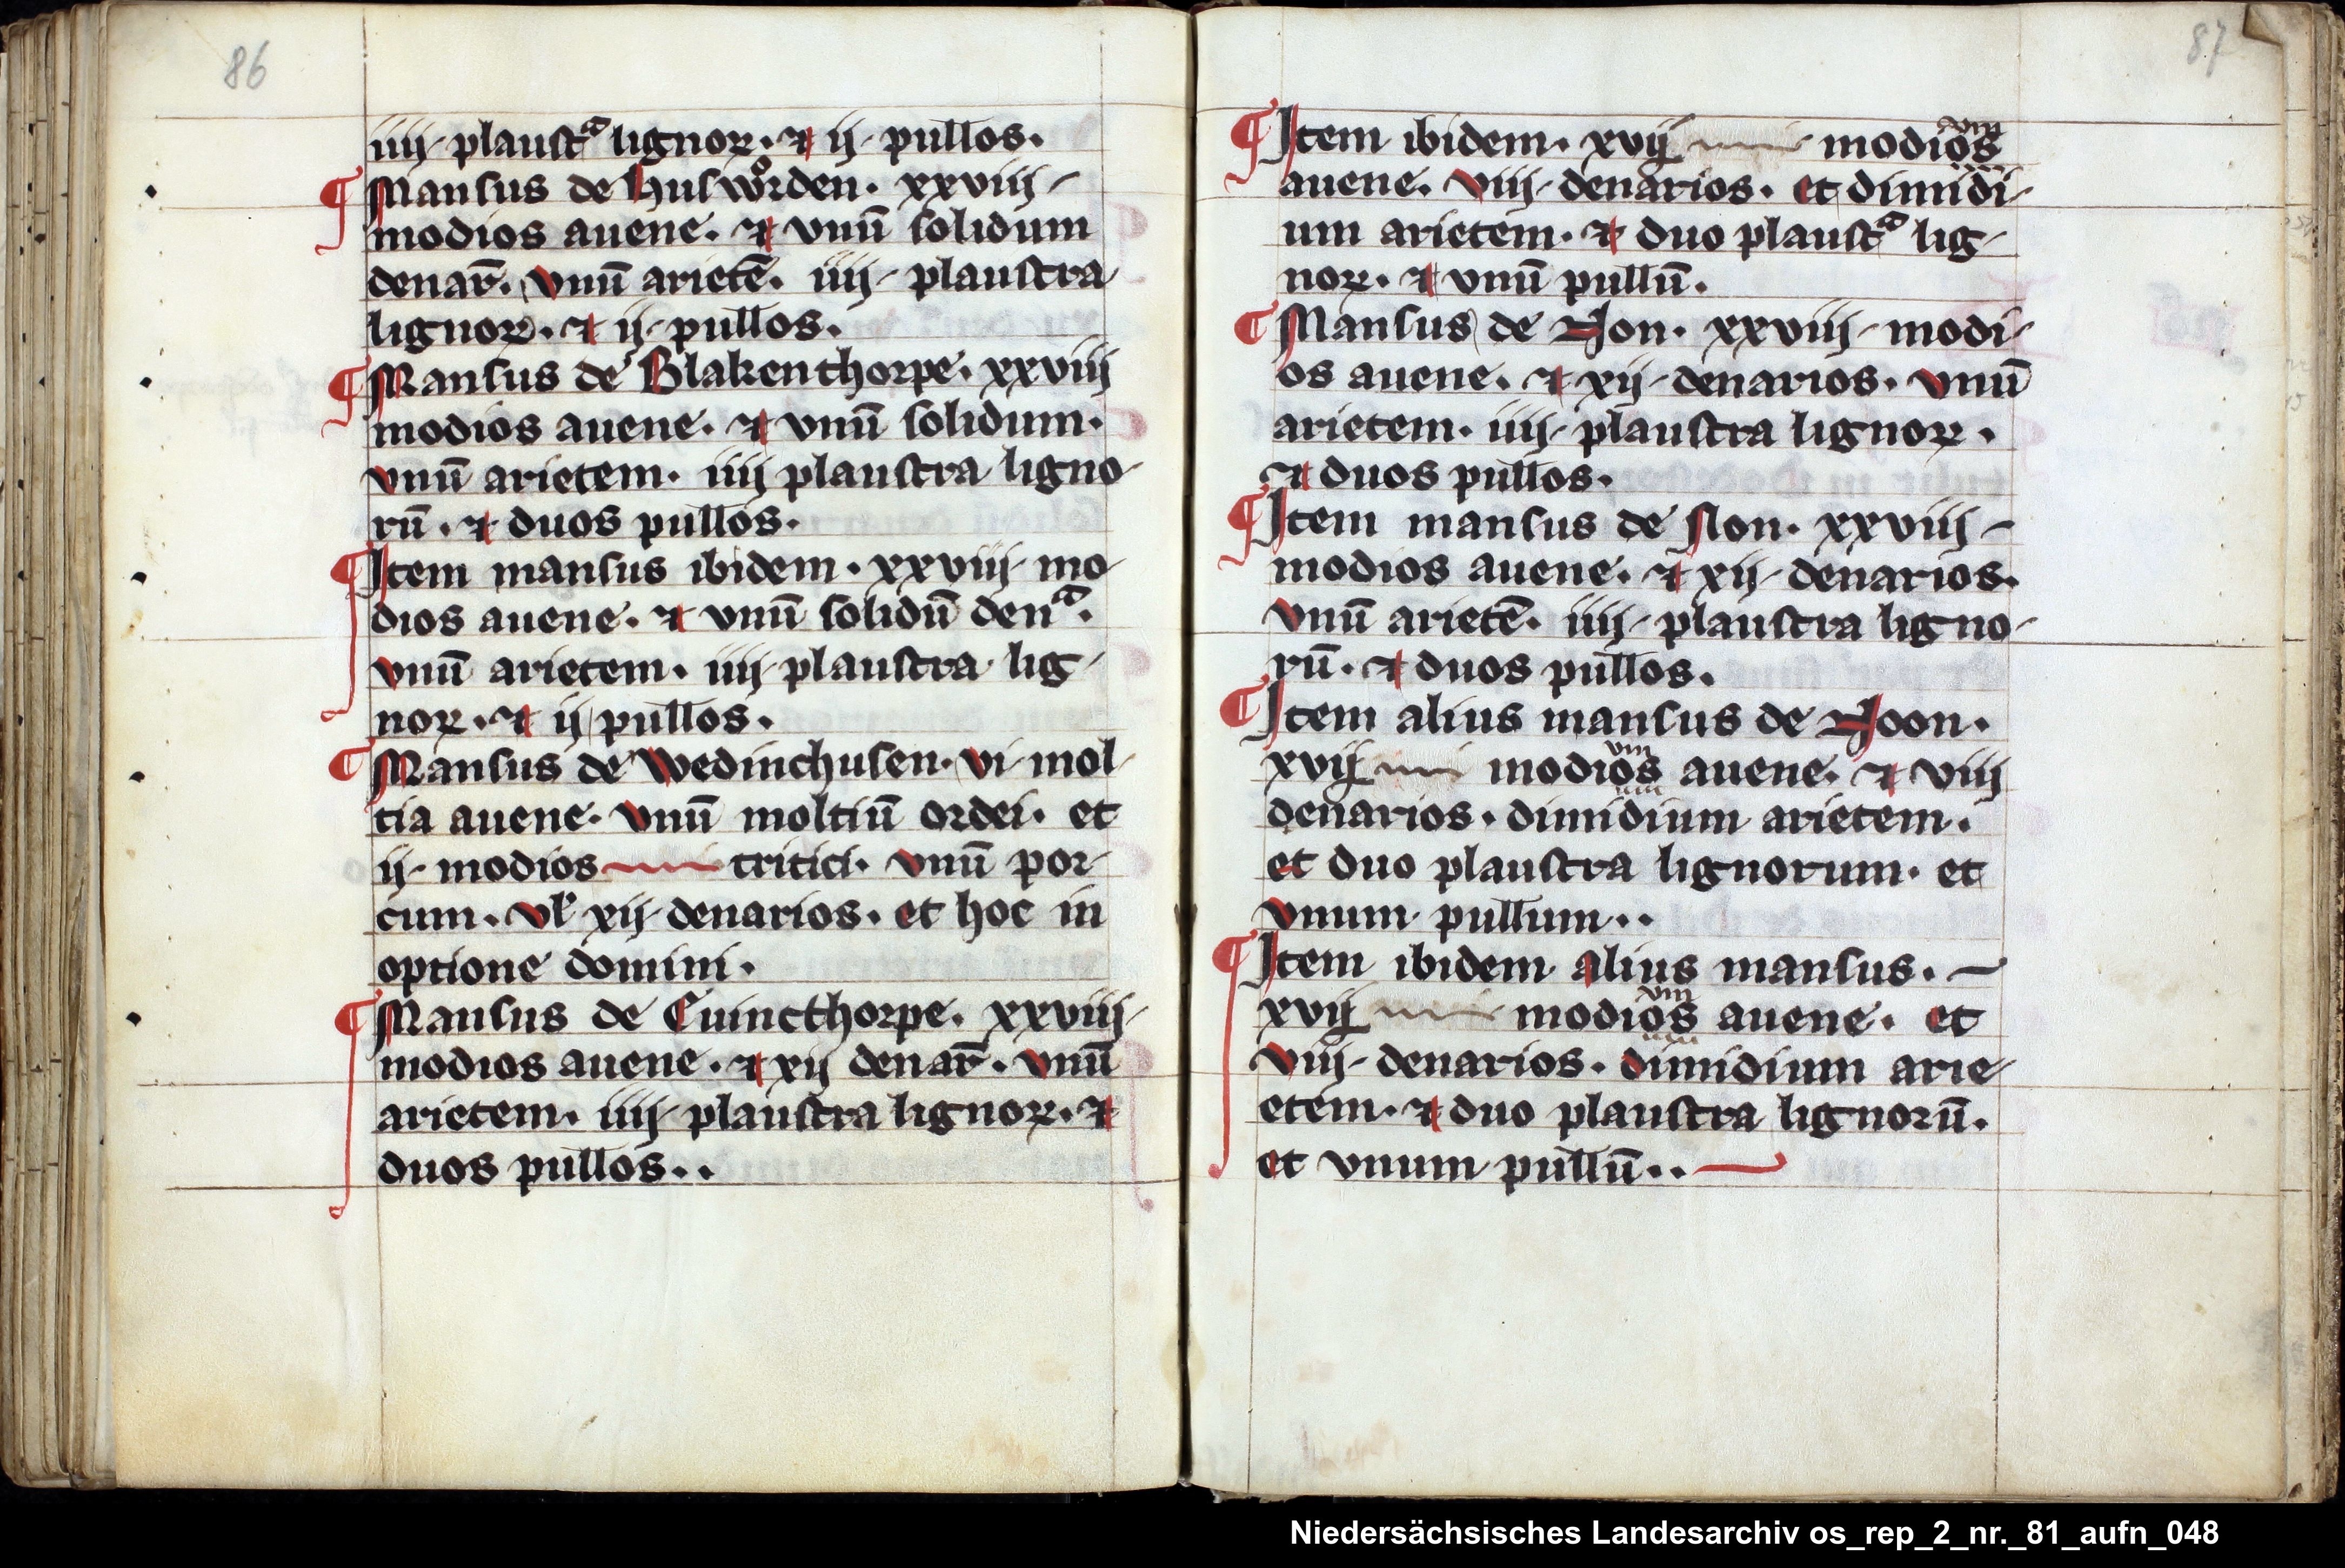 86
iiij plaustᵃ lignoꝝ. ⁊ ij pullos.
¶ Mansus de Huswoͤrden. xxviij
modios auene. ⁊ vnū solidum
denar̄. vnū arietē. iiij plaustra
lignoꝝ. ⁊ ij pullos.
¶ Mansus de Blakenthorpe. xxviij
modios auene. ⁊ vnū solidum.
vnū arietem. iiij plaustra ligno
rū. ⁊ duos pullos.
¶ Item mansus ibidem. xxviij mo
dios auene. ⁊ vnū solidū denᵃ.
vnū arietem. iiij plaustra lig
noꝝ. ⁊ ij pullos.
¶ Mansus de Wedinchusen. vi mol
tia auene. vnū moltiū ordei. et
ij modios tritici. vnū por
cum. vl̕ xij denarios. et hoc in
optione domini.
¶ Mansus de Euincthorpe. xxviij
modios auene. ⁊ xij denar̄. vnū
arietem. iiij plaustra lignoꝝ. ⁊
duos pullos..
87
¶ Item ibidem. xvij modios
auene. viij denarios. et dimidi
um arietem. ⁊ duo plaustᵃ lig
noꝝ. ⁊ vnū pullū.
¶ Mansus de Non. xxviij modi
os auene. ⁊ xij denarios. vnū
arietem. iiij plaustra lignoꝝ.
⁊ duos pullos.
¶ Item mansus de Non. xxviij
modios auene. ⁊ xij denarios.
vnū arietē. iiij plaustra ligno
rū. ⁊ duos pullos.
¶ Item alius mansus de Noon.
xvij modios auene. ⁊ viij
denarios. dimidium arietem.
et duo plaustra lignorum. et
vnum pullum..
¶ Item ibidem alius mansus.
xvij modios auene. et
viij denarios. dimidium arie
etem. ⁊ duo plaustra lignorū.
et vnum pullū..
Niedersächsisches Landesarchiv os_rep_2_nr._81_aufn_048